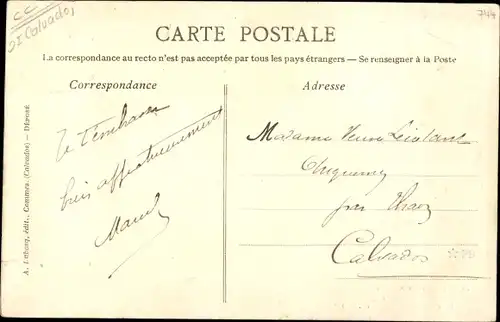 CC
Calvados
747
CARTE POSTALE
La correspondance au recto n'est pas acceptée par tous les pays étrangers — Se renseigner à la Poste
Correspondance
Adresse
Je t'embrasse
bien affectueusement
Marcel
Madame Veuve
par
Calvados
édit., Commes (Calvados) — Déposé